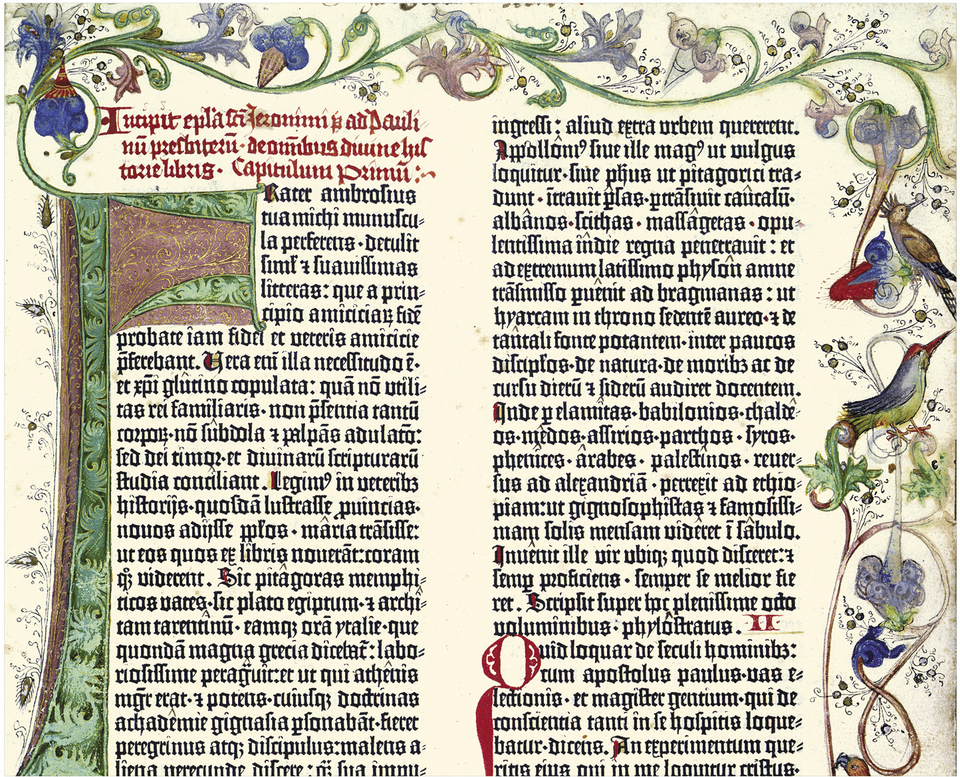 Incipit epl̄a sc̄i Jeronimi p̄ ad Pauli
nū presbiterū · de omībus divine his
torie libris · Capitulum Primū :·
Frater ambrosius
tua michi munuscu⸗
la perferens · detulit
siml̄ ⁊ suavissimas
litteras : que a prin⸗
cipio amiciciaꝝ fidē
probate iam fidei et veteris amicicie
p̄ferebant. Vera enī illa necessitudo ē·
et xp̄i glutino copulata : quā nō utili⸗
tas rei familiaris · non p̄sentia tantū
corpoꝝ · nō subdola ⁊ palpās adulatō :
sed dei timor · et divinarū scripturarū
studia conciliant. Legimꝰ in veteribꝫ
historijs · quosdā lustrasse ꝓvincias·
novos adijsse pplōs · maria trāsisse :
ut eos quos ex libris noverāt : coram
qꝫ viderent. Sic pitagoras memphi⸗
ticos vates · sic plato egiptum · ⁊ archi⸗
tam tarentinū · eamqꝫ orā ytalie · que
quondā magna grecia dicebat̄ : labo⸗
riosissime peragʳuit : et ut qui athenis
mgr̄ erat · ⁊ potens · cuiusqꝫ doctrinas
achademie gignasia ꝑsonabāt · fieret
peregrinus atqꝫ discipulus : malens a⸗
liena verecunde discere : qꝫ sua impu⸗
ingessi : aliud extra urbem quererent.
Appollonꝰ sive ille magꝰ ut vulgus
loquitur · sive ph̄us · ut pitagorici tra⸗
dunt · ītravit ꝑsas · ꝑtrāsivit caucasū·
albanos · scithas · massagetas · opu⸗
lentissima īdie regna penetravit : et
ad extremum latissimo physon amne
trāsmisso ꝑvenit ad bragmanas : ut
hyarcam in throno sedentē aureo · ⁊ de
tantali fonte potantem · inter paucos
discipl̄os · de natura · de moribꝫ ac de
cursu dierū ⁊ siderū audiret docentem.
Inde ꝑ elamitas · babilonios · chalde⸗
os · medos · assirios · parthos · syros·
phenices · arabes · palestinos · rever⸗
sus ad alexandriā · perrexit ad ethio⸗
piam : ut gignosophistas ⁊ famosissi⸗
mam solis mensam videret ī sabulo.
Invenit ille vir ubiqꝫ quod disceret : ⁊
semꝑ proficiens · semper se melior fie
ret. Scripsit super hoc plenissime octo
voluminibus : phylostratus. II
Quid loquar de seculi hominibꝫ :
cum apostolus paulus · vas e⸗
lectionis · et magister gentium · qui de
consciencia tanti in se hospitis loque⸗
batur · dicens. An experimentum que⸗
ritis eius qui in me loquitur cristus·